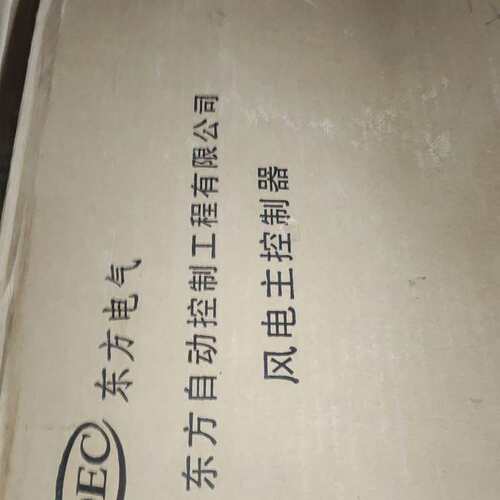 EC 东方电气
东方自动控制工程有限公司
风电主控制器